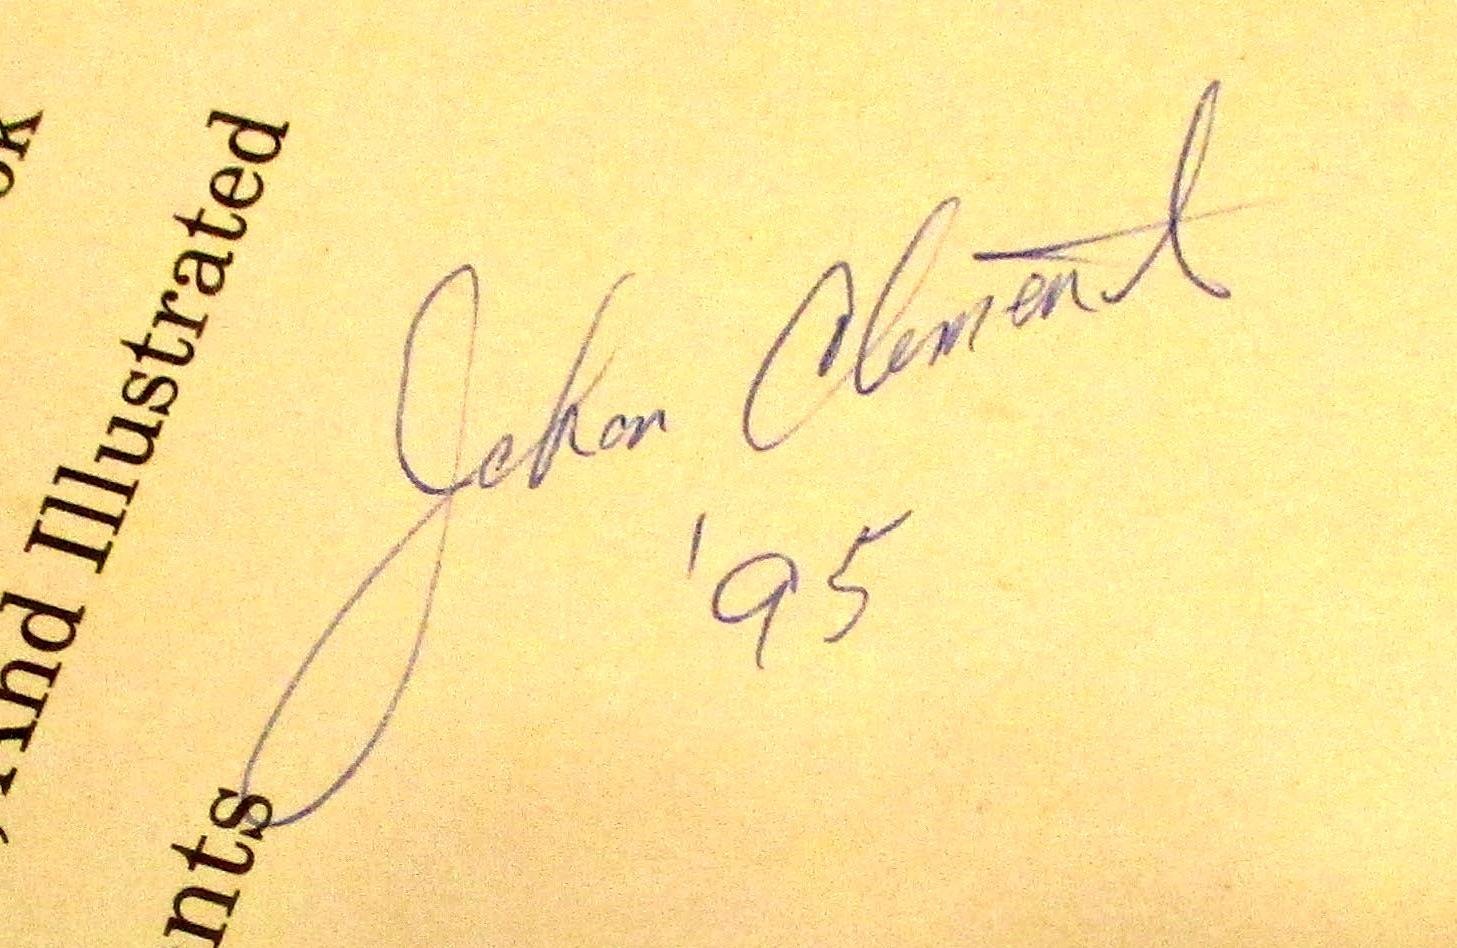 ok
And Illustrated
nts
Jehan Clements
'95